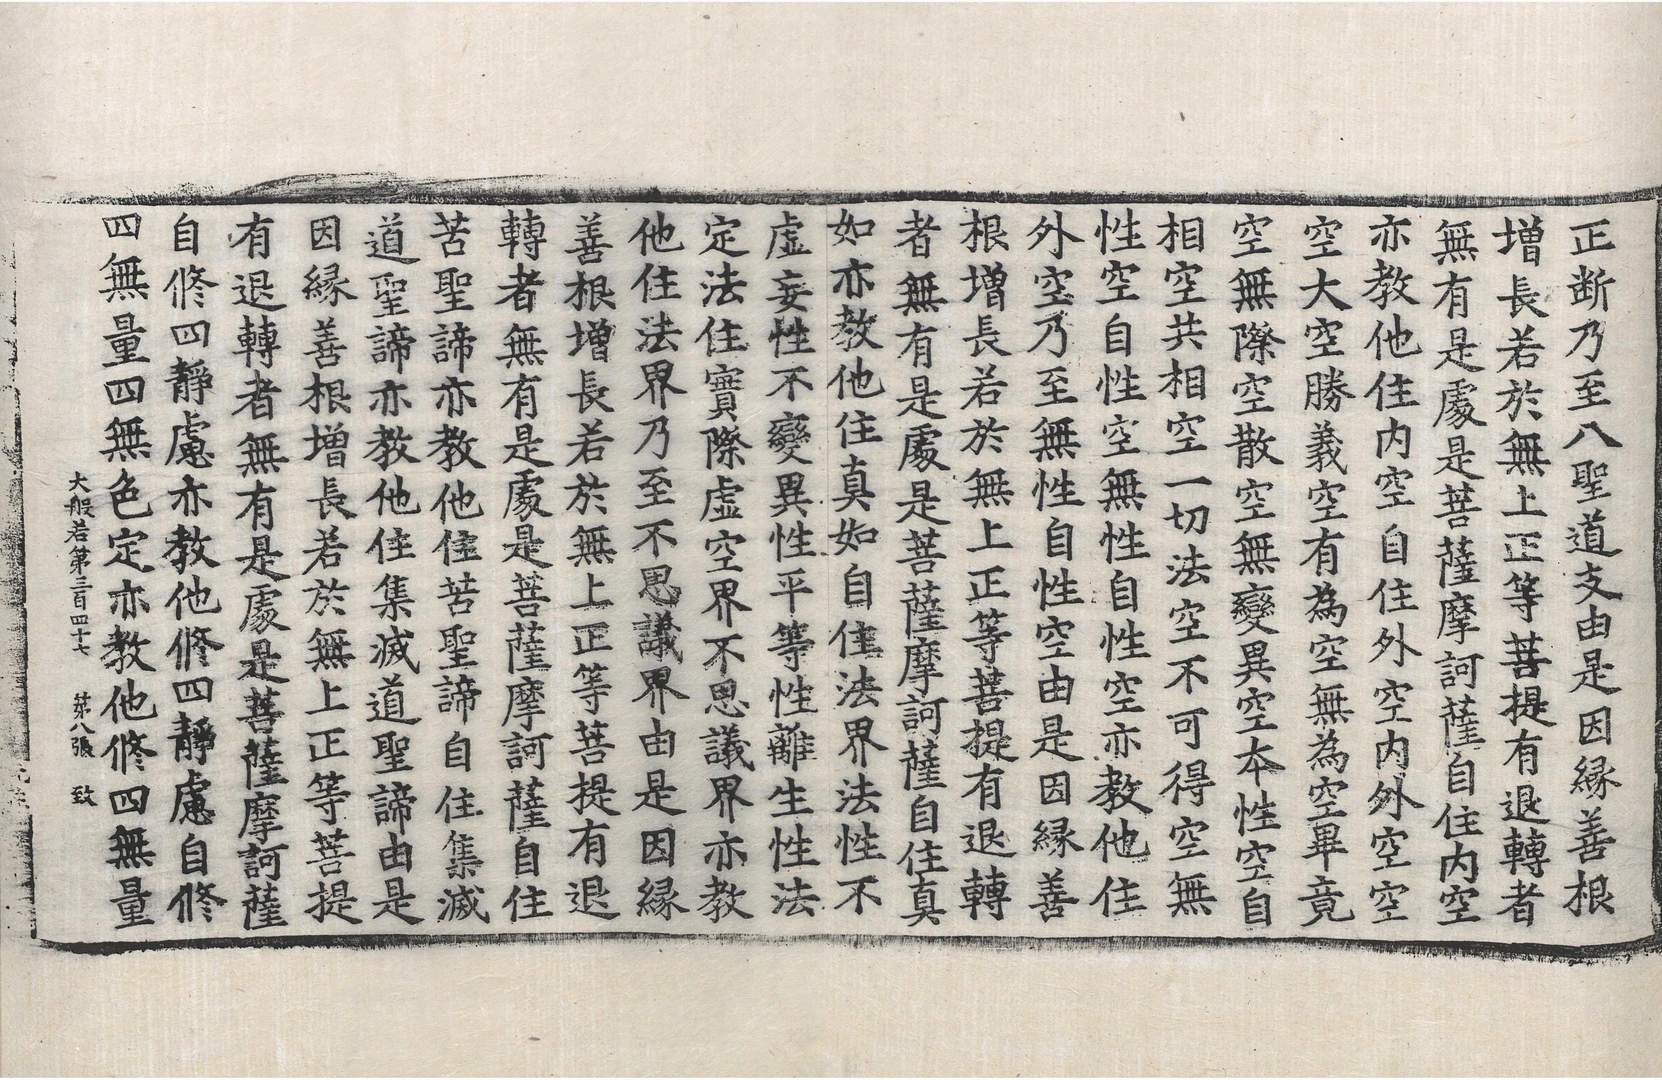 正断乃至八聖道支由是因縁善根
増長若於無上正等菩提有退轉者
無有是處是菩薩摩訶薩自住內空
亦教他住內空自住外空內外空空
空大空勝義空有為空無為空畢竟
空無際空散空無變異空本性空自
相空共相空一切法空不可得空無
性空自性空無性自性空亦教他住
外空乃至無性自性空由是因縁善
根増長若於無上正等菩提有退轉
者無有是處是菩薩摩訶薩自住真
如亦教他住真如自住法界法性不
虛妄性不變異性平等性離生性法
定法住實際虛空界不思議界亦教
他住法界乃至不思議界由是因縁
善根増長若於無上正等菩提有退
轉者無有是處是菩薩摩訶薩自住
苦聖諦亦教他住苦聖諦自住集滅
道聖諦亦教他住集滅道聖諦由是
因縁善根増長若於無上正等菩提
有退轉者無有是處是菩薩摩訶薩
自修四靜慮亦教他修四靜慮自修
四無量四無色定亦教他修四無量
大般若第三百四十七 第八張 致